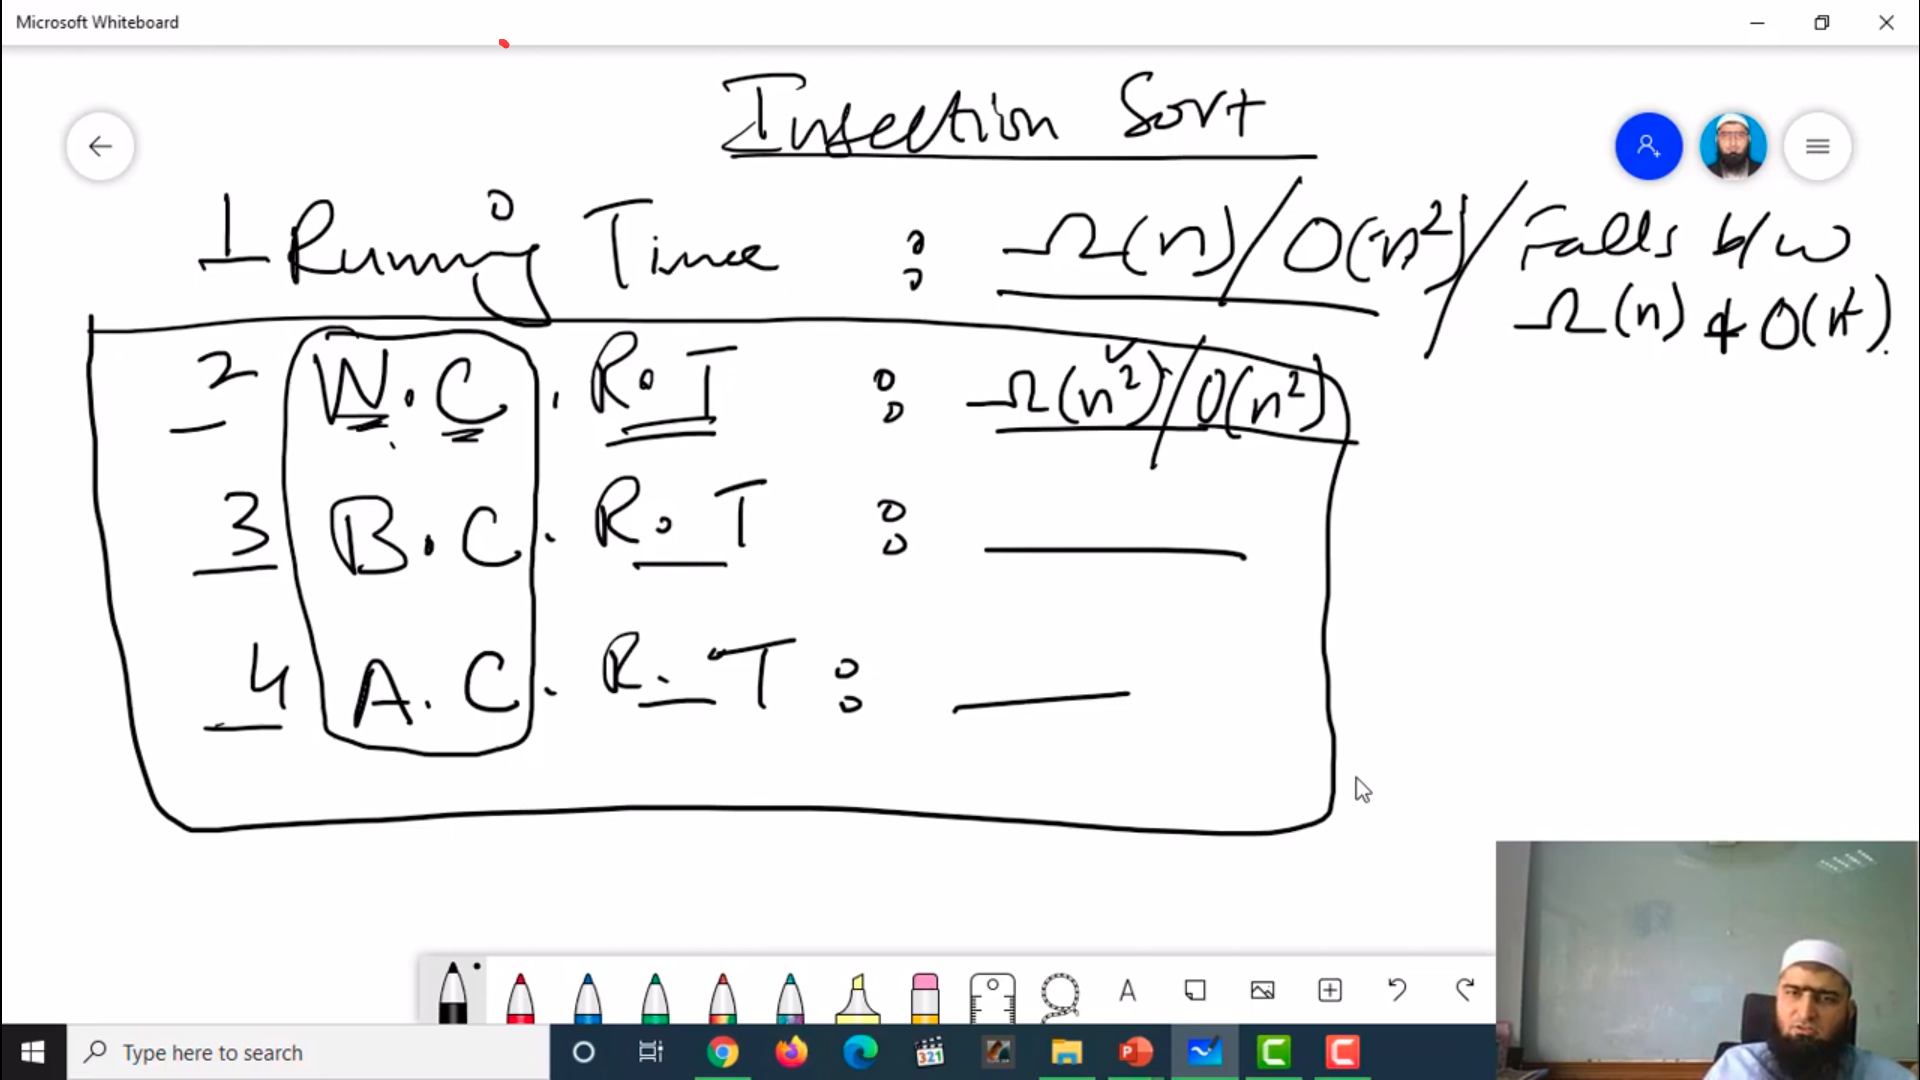 Microsoft Whiteboard
Insertion Sort
1 Running Time : Ω(n) / O(n²) / Falls b/w
Ω(n) & O(n²).
2 W.C. R.T : Ω(n²) / O(n²)
3 B.C. R.T :
4 A.C. R.T :
A
321
Type here to search